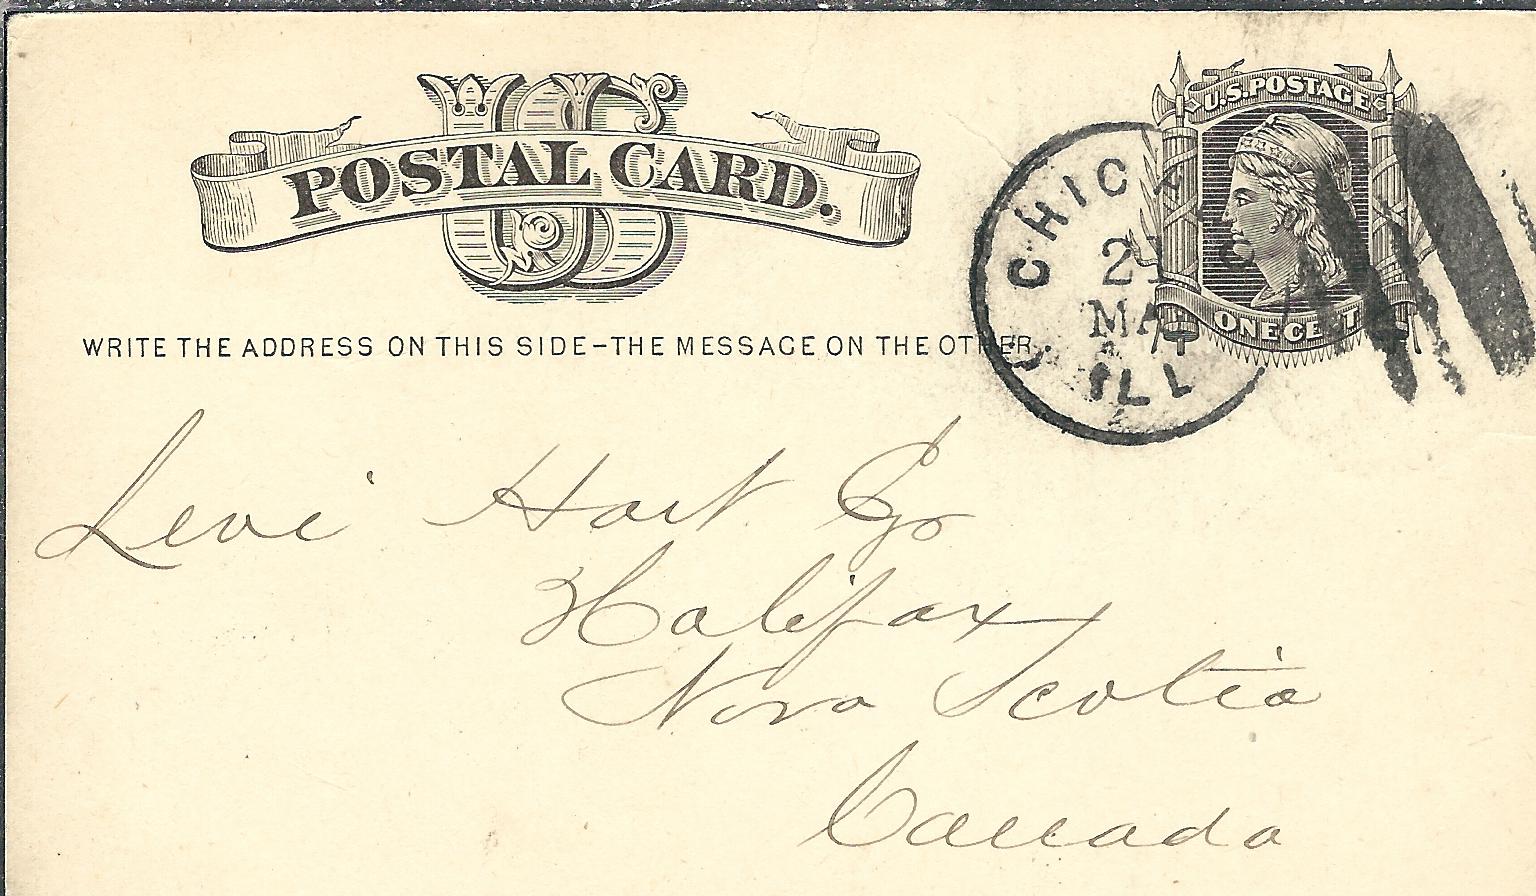 US
POSTAL CARD.
U.S. POSTAGE
ONE CENT
CHICA
21
MA
ILL
WRITE THE ADDRESS ON THIS SIDE-THE MESSAGE ON THE OTHER
Levi Hart
Halifax
Nova Scotia
Canada